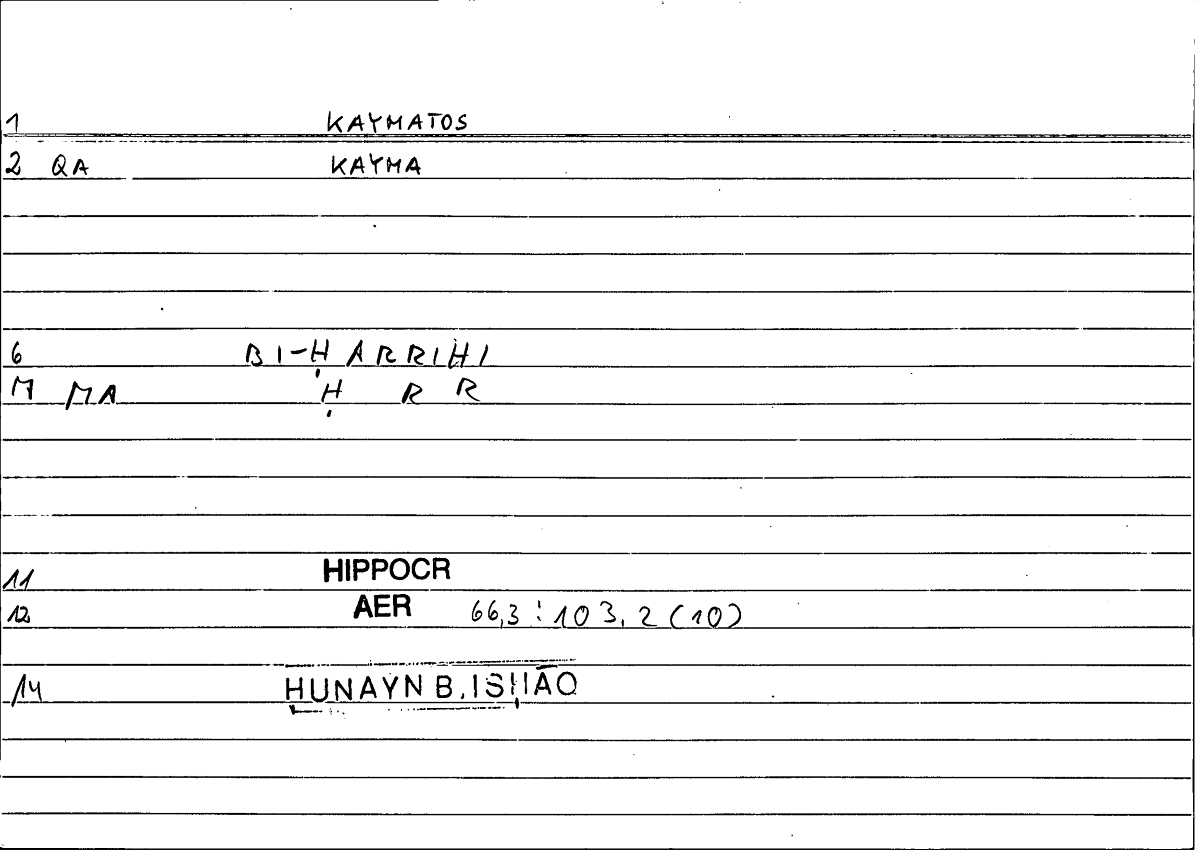 1 KAYMATOS
2 QA KAYMA
6 BI-ḤARRIHI
M MA Ḥ R R
11 HIPPOCR
12 AER 66,3 : 103,2 (10)
14 ḤUNAYN B. ISḤĀQ